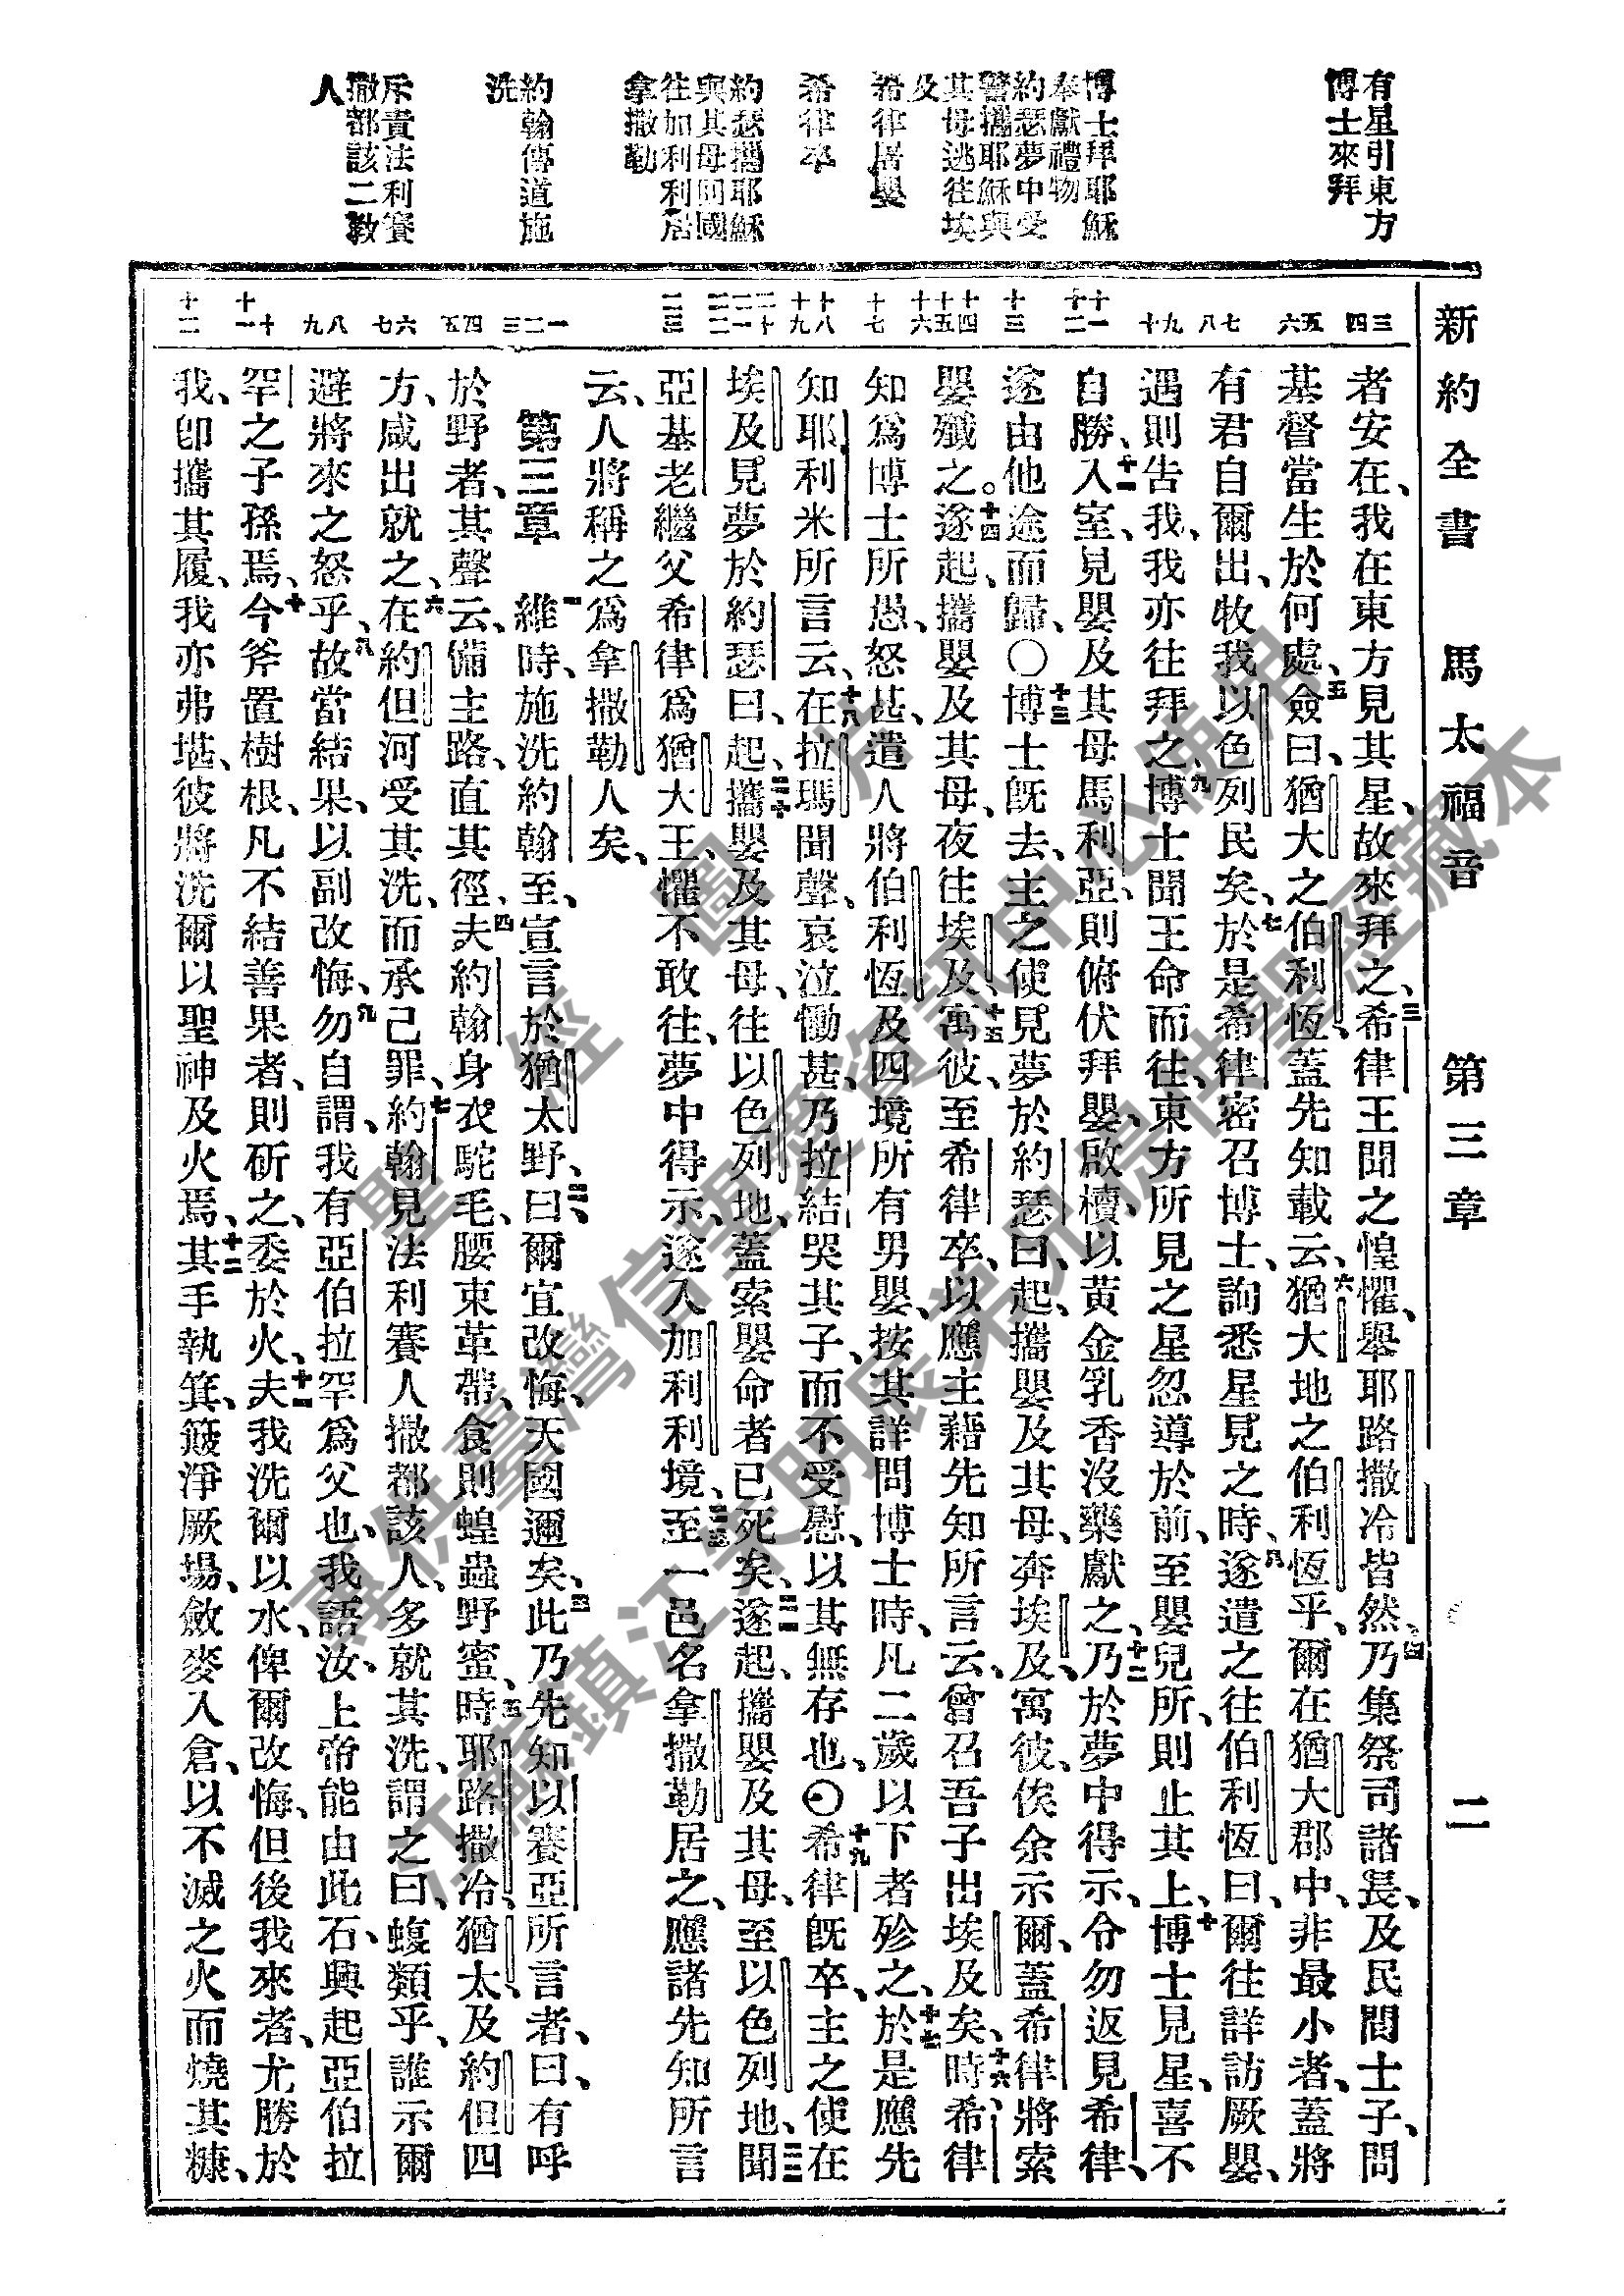 新約全書　馬太福音　第三章　二
有星引東方
博士來拜
博士拜耶穌
奉獻禮物
約瑟夢中受
警攜耶穌與
其母逃往埃
及
希律居嬰
希律卒
約瑟攜耶穌
與其母回國
往加利利居
拿撒勒
約翰傳道施
洗
斥責法利賽
撒都該二教
人
三 四
五 六
七 八
九 十
十一 十二
十三
十四 十五 十六
十七
十八 十九
二十 二一 二二
二三
一 二 三
四 五
六 七
八 九
十 十一
十二
者安在、我在東方見其星、故來拜之、三希律王聞之惶懼、舉耶路撒冷皆然、四乃集祭司諸長、及民間士子、問
基督當生於何處、五僉曰、猶大之伯利恆、蓋先知載云、六猶大地之伯利恆乎、爾在猶大郡中、非最小者、蓋將
有君自爾出、牧我以色列民矣、七於是希律密召博士、詢悉星見之時、八遂遣之往伯利恆曰、爾往詳訪厥嬰、
遇則吿我、我亦往拜之、九博士聞王命而往、東方所見之星、忽導於前、至嬰兒所、則止其上、十博士見星、喜不
自勝、十一入室、見嬰及其母馬利亞、則俯伏拜嬰、啟櫝以黃金乳香沒藥獻之、十二乃於夢中得示、令勿返見希律、
遂由他途而歸、〇十三博士旣去、主之使見夢於約瑟曰、起、攜嬰及其母、奔埃及、寓彼、俟余示爾、蓋希律將索
嬰殲之。十四遂起、攜嬰及其母、夜往埃及、十五寓彼、至希律卒、以應主藉先知所言云、曾召吾子出埃及矣、十六時、希律
知爲博士所愚、怒甚、遣人將伯利恆及四境所有男嬰、按其詳問博士時、凡二歲以下者殄之、十七於是應先
知耶利米所言云、十八在拉瑪聞聲、哀泣慟甚、乃拉結哭其子、而不受慰、以其無存也、〇十九希律旣卒、主之使在
埃及見夢於約瑟曰、二十起、攜嬰及其母、往以色列地、蓋索嬰命者已死矣、二一遂起、攜嬰及其母、至以色列地、二二聞
亞基老繼父希律爲猶大王、懼不敢往、夢中得示、遂入加利利境、二三至一邑名拿撒勒居之、應諸先知所言
云、人將稱之爲拿撒勒人矣、
第三章　一維時、施洗約翰至、宣言於猶太野、二曰、爾宜改悔、天國邇矣、三此乃先知以賽亞所言者、曰、有呼
於野者、其聲云、備主路、直其徑、四夫約翰身衣駝毛、腰束革帶、食則蝗蟲野蜜、五時、耶路撒冷、猶太、及約但四
方、咸出就之、六在約但河受其洗、而承己罪、七約翰見法利賽人撒都該人、多就其洗、謂之曰、蝮類乎、誰示爾
避將來之怒乎、八故當結果、以副改悔、九勿自謂、我有亞伯拉罕爲父也、我語汝、上帝能由此石、興起亞伯拉
罕之子孫焉、十今斧置樹根、凡不結善果者、則斫之、委於火、十一夫我洗爾以水、俾爾改悔、但後我來者、尤勝於
我、卽攜其履、我亦弗堪、彼將洗爾以聖神及火焉、十二其手執箕、簸淨厥場、斂麥入倉、以不滅之火而燒其糠、
聖經圖片
專供臺灣信望愛資訊中心使用
江蘇鎮江朱明展弟兄提供聖經藏本